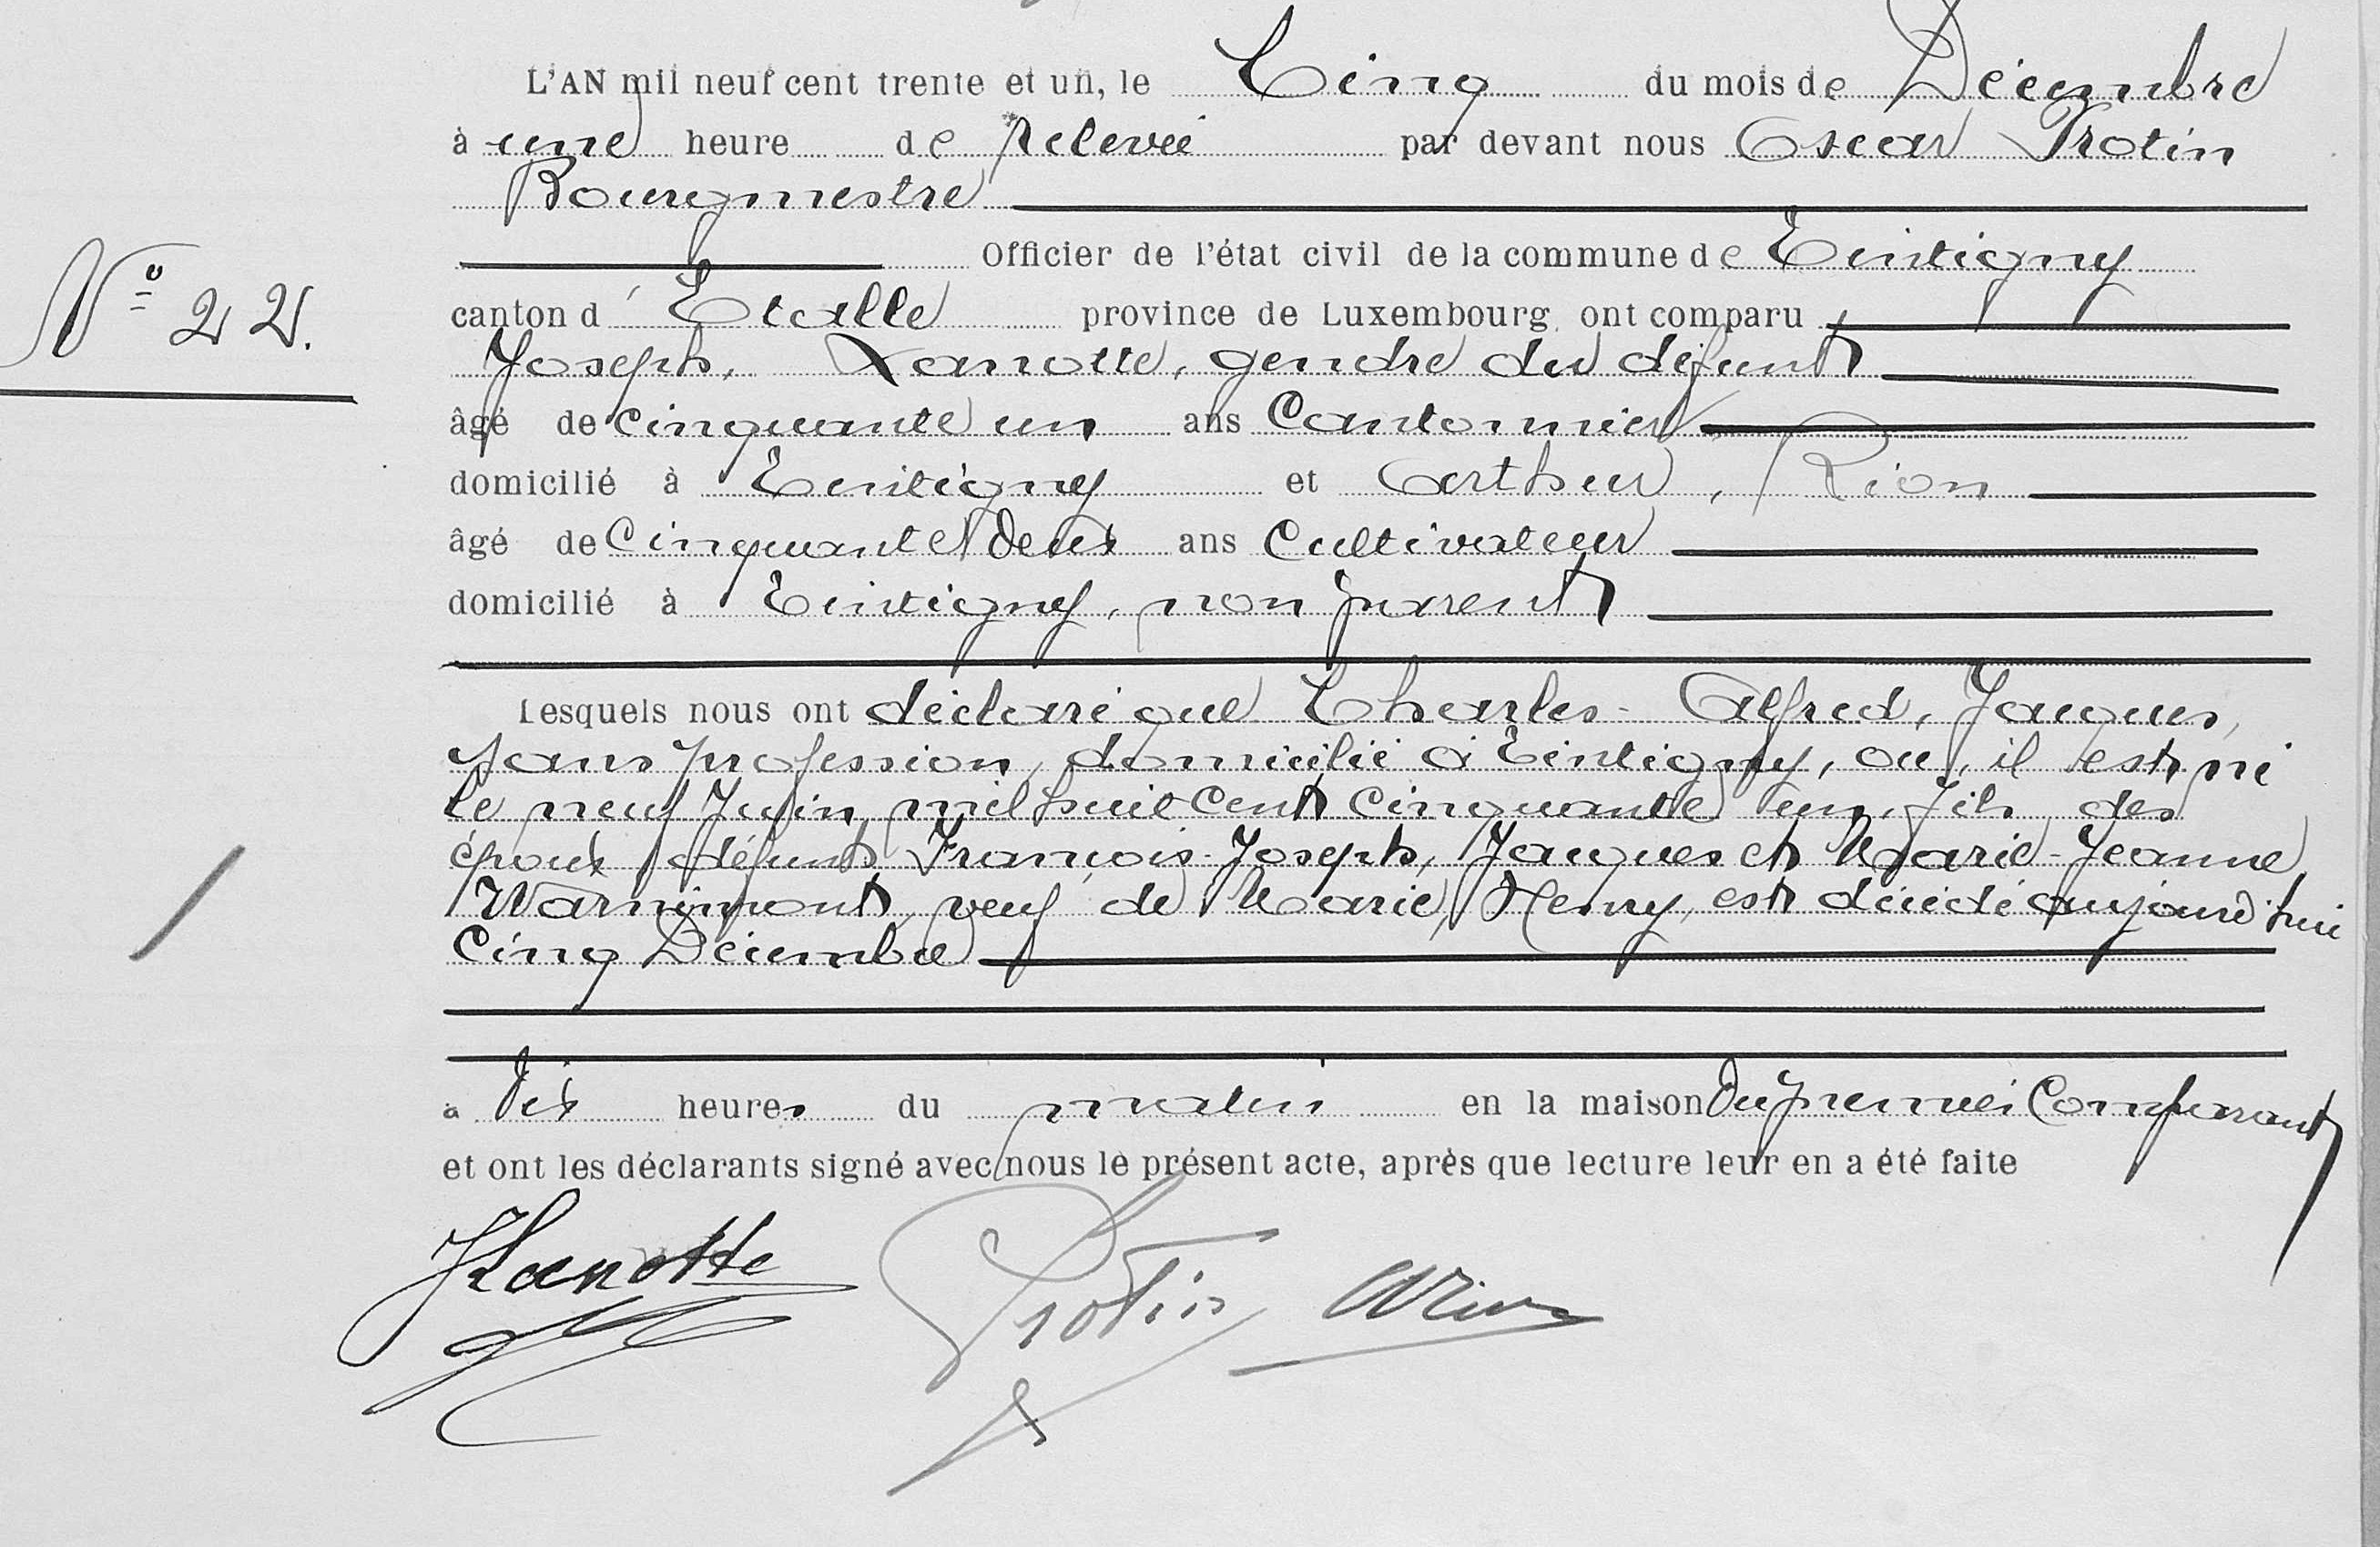 L'AN mil neuf cent trente et un, le Cinq du mois de Décembre
à une heure de relevée par devant nous Oscar Protin
Bourgmestre
Officier de l'état civil de la commune de Tintigny
canton d'Etalle province de Luxembourg ont comparu
N° 22.
Joseph, Lanotte, gendre du défunt
âgé de cinquante un ans Cantonnier
domicilié à Tintigny et Arthur, Rion
âgé de Cinquante deux ans Cultivateur
domicilié à Tintigny, non parent
Lesquels nous ont déclaré que Charles-Alfred, Jacques,
sans profession, domicilié à Tintigny, où, il est né
le neuf Juin mil huit cent cinquante un, fils des
époux défunts François-Joseph, Jacques et Marie-Jeanne
Warnimont, veuf de Marie, Henry, est décédé aujourd'hui
cinq Décembre
à dix heures du matin en la maison du premier Comparant
et ont les déclarants signé avec nous le présent acte, après que lecture leur en a été faite
JLanotte Protin ARion